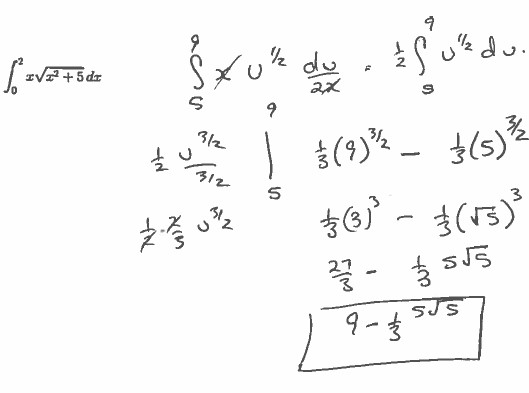 ∫₀² x√(x² + 5) dx
∫₅⁹ x u^(1/2) du/2x = 1/2 ∫₅⁹ u^(1/2) du.
1/2 u^(3/2)/(3/2) |₅⁹
1/2 · 2/3 u^(3/2)
1/3(9)^(3/2) − 1/3(5)^(3/2)
1/3(3)³ − 1/3(√5)³
27/3 − 1/3 5√5
9 − 1/3 5√5